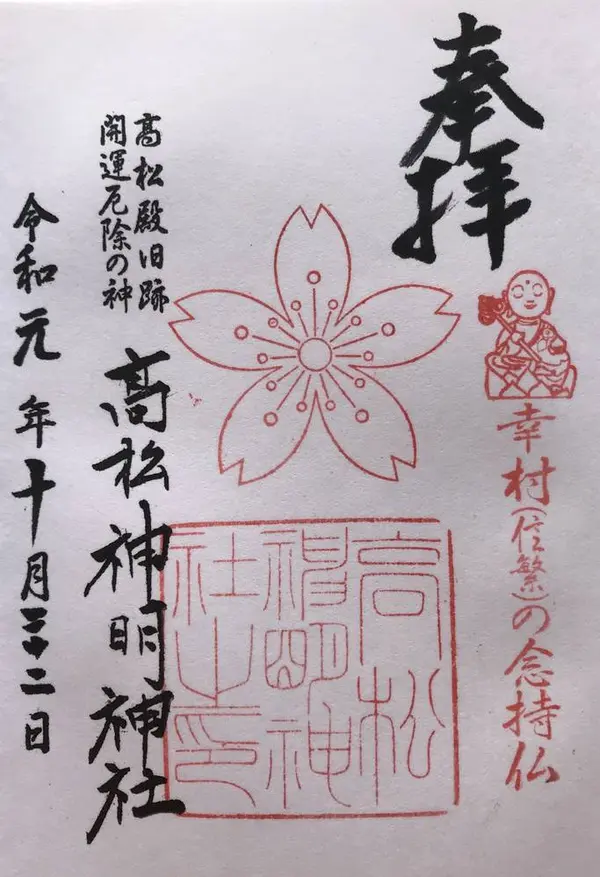 奉拝
幸村(信繁)の念持仏
高松
神明神
社之印
高松殿旧跡
開運厄除の神
高松神明神社
令和元年十月二十二日